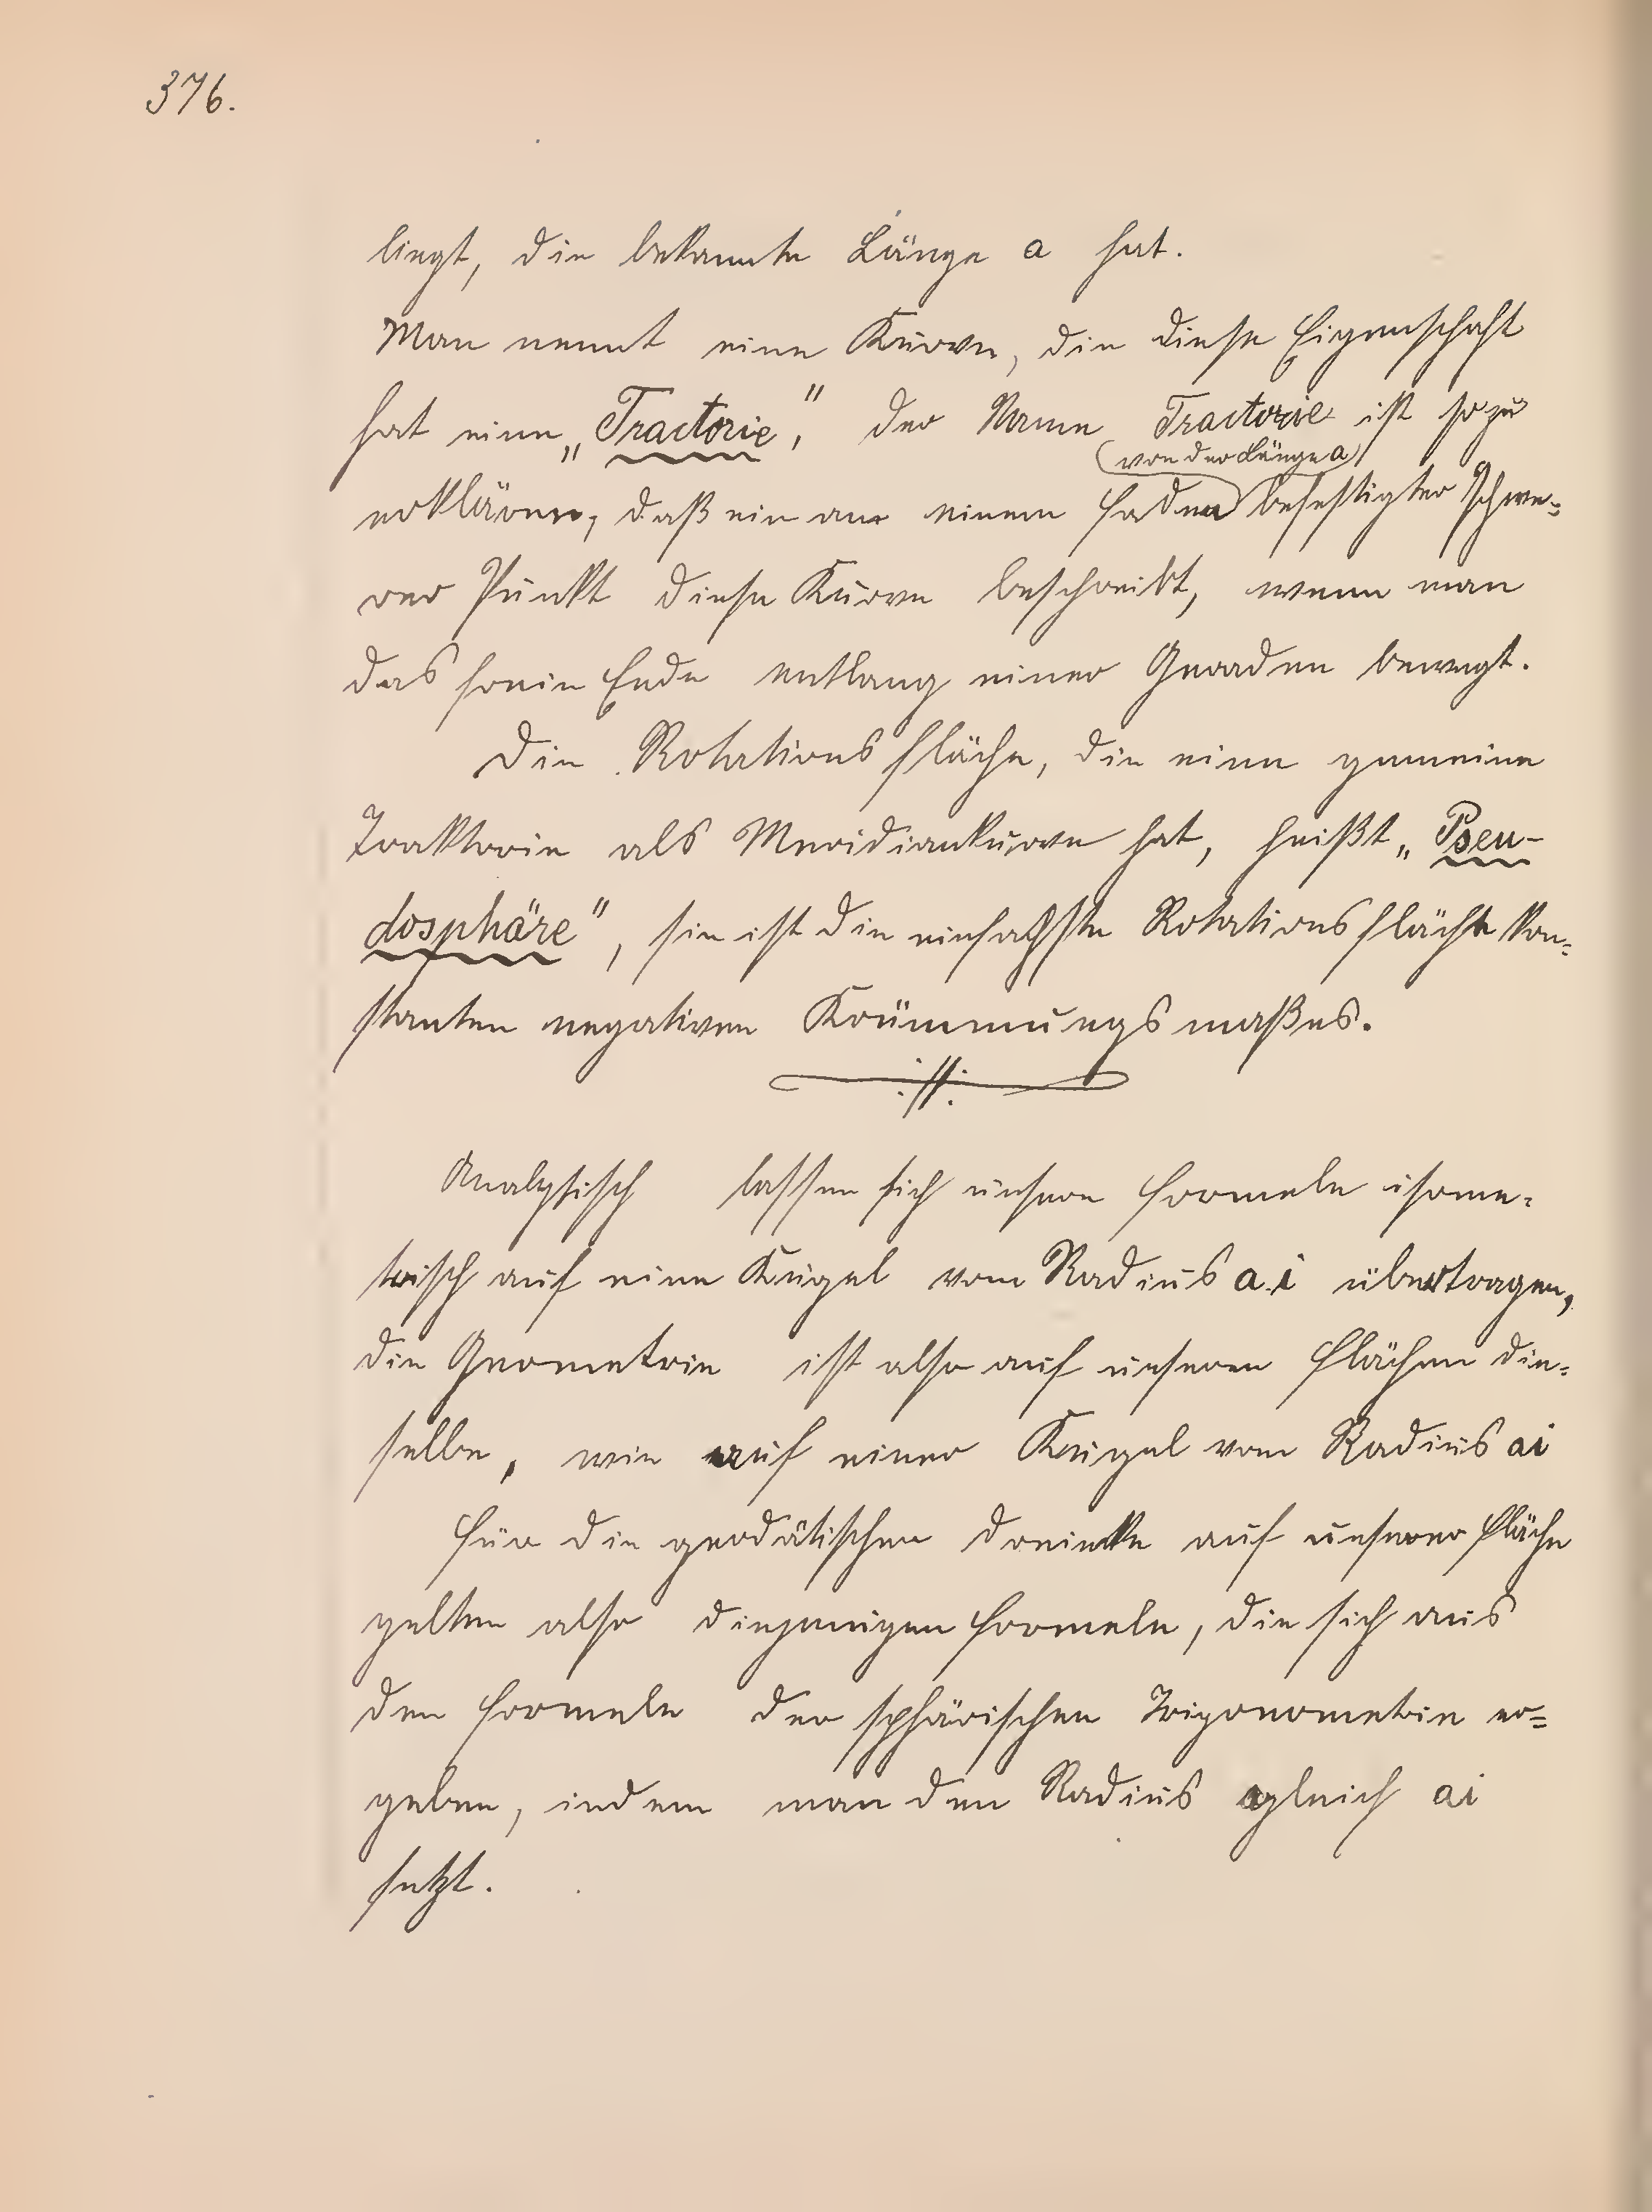 376.
liegt, die bekannte Länge a hat.
Man nennt eine Kurve, die diese Eigenschaft
hat eine „Tractorie“, der Name Tractorie ist so zu
(von der Länge a)
erklären, daß ein an einem Faden befestigter schwe=
rer Punkt diese Kurve beschreibt, wenn man
das freie Ende entlang einer Geraden bewegt.
Die Rotationsfläche, die eine gemeine
Traktorie als Meridiankurve hat, heißt „Pseu-
dosphäre“, sie ist die einfachste Rotationsfläche kon=
stanten negativen Krümmungsmaßes.
Analytisch lassen sich unsere Formeln isome=
trisch auf eine Kugel vom Radius a.i übertragen,
die Geometrie ist also auf unseren Flächen die=
selbe, wie auf einer Kugel vom Radius ai
Für die geodätischen Dreiecke auf unserer Fläche
gelten also diejenigen Formeln, die sich aus
den Formeln der sphärischen Trigonometrie er=
geben, indem man den Radius gleich ai
setzt.